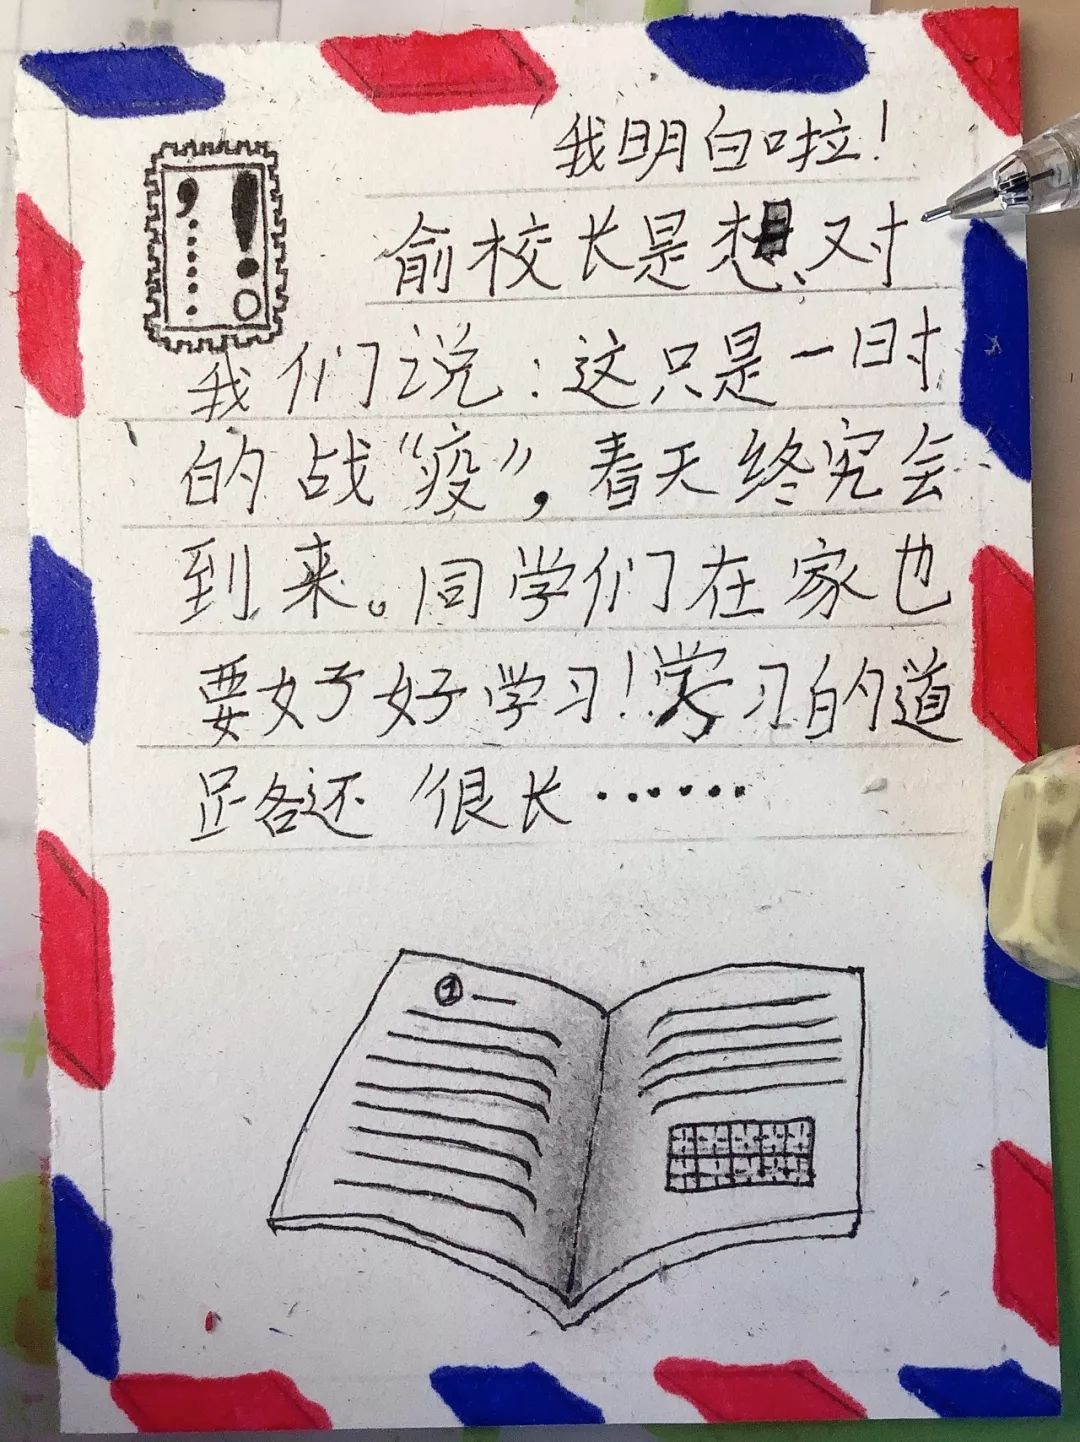 我明白啦！
俞校长是想对
我们说：这只是一时
的战“疫”，春天终究会
到来。同学们在家也
要好好学习！学习的道
路还很长……
，……！。
①